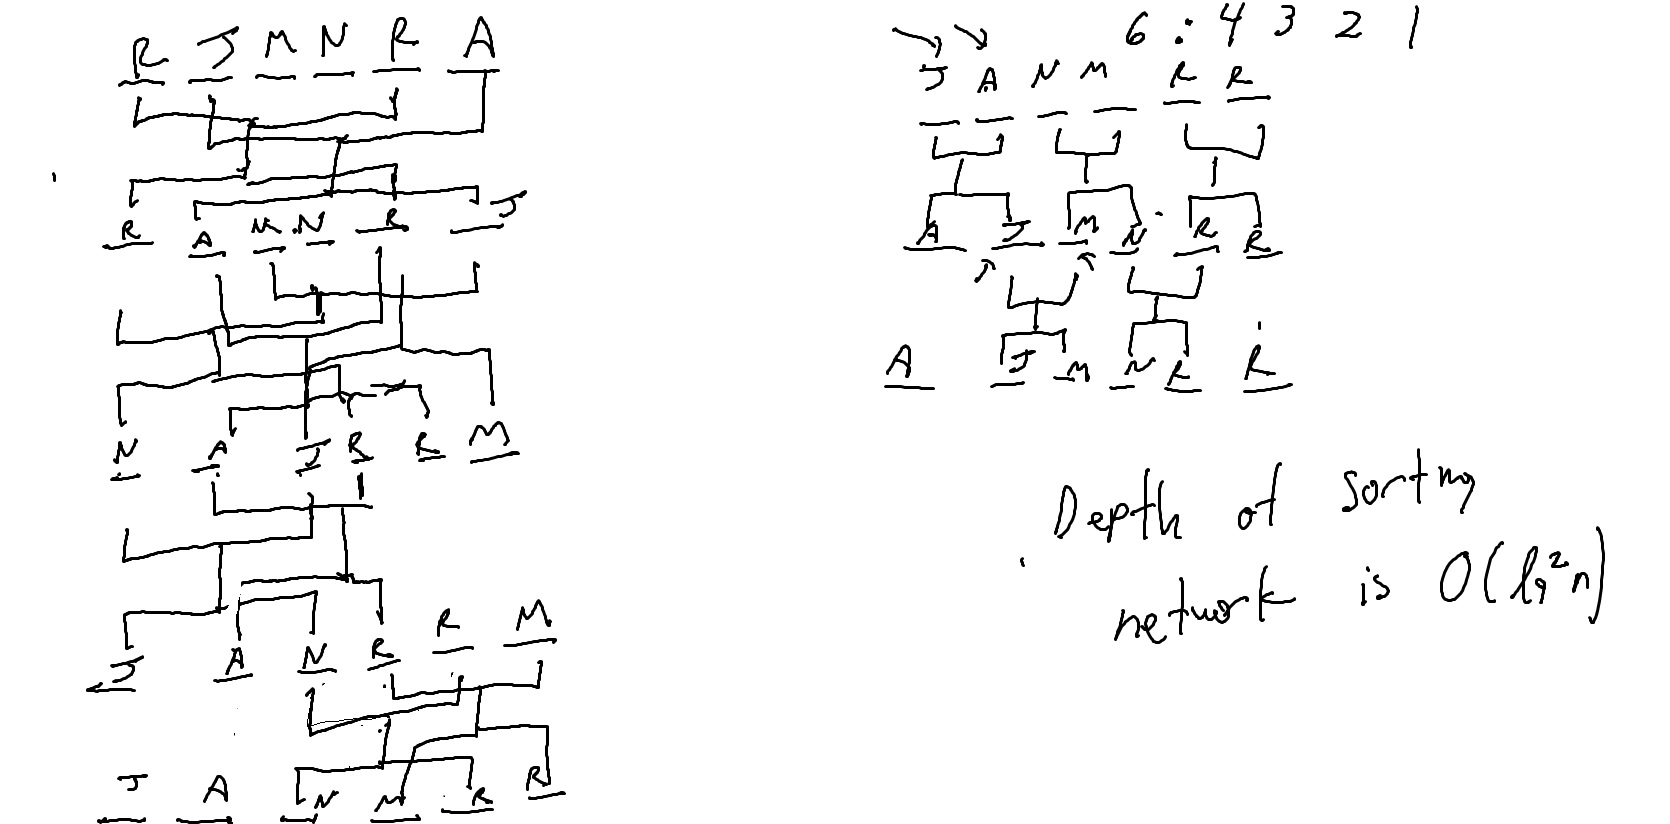 R J M N R A
R A M N R J
N A J R R M
J A N R R M
J A N M R R
6 : 4 3 2 1
J A N M R R
A J M N R R
A J M N R R
Depth of sorting
network is O(lg²n)